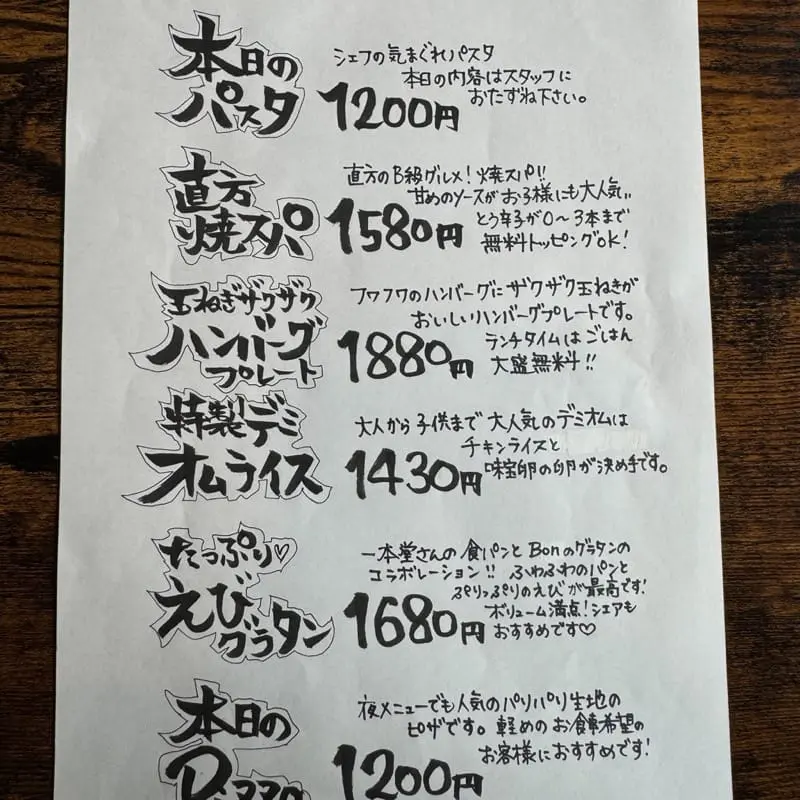 本日の
パスタ
シェフの気まぐれパスタ
本日の内容はスタッフに
おたずね下さい。
1200円
直方
焼スパ
直方のB級グルメ!焼スパ!!
甘めのソースがお子様にも大人気!!
とう辛子が0〜3本まで
無料トッピングOK!
1580円
玉ねぎザクザク
ハンバーグ
プレート
フワフワのハンバーグにザクザク玉ねぎが
おいしいハンバーグプレートです。
ランチタイムはごはん
大盛無料!!
1880円
特製デミ
オムライス
大人から子供まで大人気のデミオムは
チキンライスと
味宝卵の卵が決め手です。
1430円
たっぷり♡
えび
グラタン
一本堂さんの食パンとBonのグラタンの
コラボレーション!!ふわふわのパンと
ぷりっぷりのえびが最高です!
ボリューム満点!シェアも
おすすめです♡
1680円
本日の
Pizza
夜メニューでも人気のパリパリ生地の
ピザです。軽めのお食事希望の
お客様におすすめです!
1200円